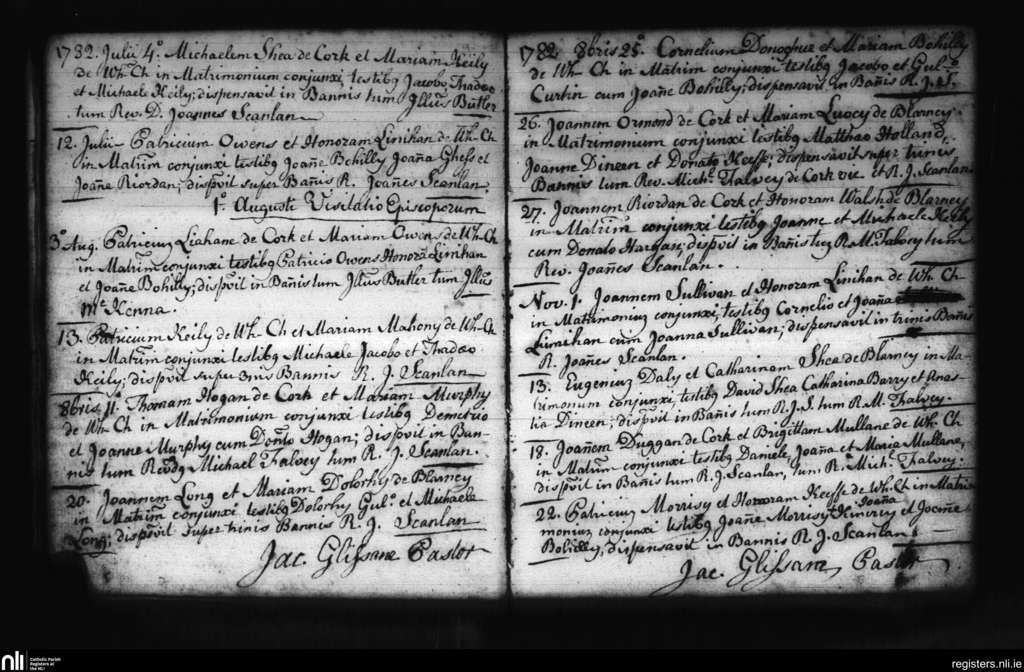 1782. Julii 4º. Michaelem Shea de Cork et Mariam Keily
de Wh Ch in Matrimonium conjunxi, testibq Jacobo, Thadæo
et Michaele Keily; dispensavit in Bannis tum Jllus Butler
tum Rev. D. Joannes Scanlan
12. Julii Patricium Owens et Honoram Linihan de Wh-Ch
in Matrim conjunxi testibq Joañe Bohilly Joaña Ghess et
Joañe Riordan; dispvit super Bañis R. Joañes Scanlan.
1º. Augusti Visitatio Episcoporum
3º Aug. Patricium Liahane de Cork et Mariam Owens de Wh-Ch
in Matrim conjunxi testibq Patricio Owens Honora Linihan
et Joañe Bohilly; dispvit in Bañis tum Jllus Butler tum Jllus
Mc. Kenna.
13. Patricium Keily de Wh-Ch et Mariam Mahony de Wh-Ch
in Matrim conjunxi testibq Michaele Jacobo et Thadæo
Keily; dispvit super 3nis Bannis R. J. Scanlan
8bris 11º. Thomam Hogan de Cork et Mariam Murphy
de Wh-Ch in Matrimonium conjunxi testibq Demetrio
et Joanne Murphy cum Donto Hogan; dispvit in Ban-
nis tum Revdq Michael Falvey tum R. J. Scanlan.
20. Joannem Long et Mariam Dolorhy de Blarney
in Matrim conjunxi testibq Dolorhy Gul.º et Michaele
Long; dispvit super trinis Bannis R. J. Scanlan
Jac. Glissane Pastor
1782. 8bris 25º. Cornelium Donoghue et Mariam Bohilly
de Wh Ch in Matrim conjunxi testibq Jacobo et Gul.º
Curtin cum Joañe Bohilly; dispensavit in Bañis R. J. S.
26. Joannem Ormond de Cork et Mariam Luocy de Blarney
in Matrimonium conjunxi testibq Matthæo Holland,
Joanne Dineen et Donato Keeffe; dispensavit super trinis
Bannis tum Rev. Mich. Falvey de Cork vic et R. J. Scanlan
27. Joannem Riordan de Cork et Honoram Walsh de Blarney
in Matrim conjunxi testibq Joanne et Michaele
cum Donato Hargan; dispvit in Bañis tum R. M. Falvey tum
Rev. Joañes Scanlan.
Nov. 1. Joannem Sullivan et Honoram Linihan de Wh Ch
in Matrimonium conjunxi, testibq Cornelio et Joaña
Linaihan cum Joanna Sullivan; dispensavit in trinis Bañis
R. Joañes Scanlan.
13. Eugenium Daly et Catharinam Shea de Blarney in Ma-
trimonium conjunxi testibq David Shea Catharina Barry et Anas-
tia Dineen; dispvit in Bañis tum R. J. S. tum R. M. Falvey.
18. Joañem Duggan de Cork et Brigittam Mullane de Wh Ch
in Matrim conjunxi testibq Daniele, Joaña et Maria Mullane,
dispvit in Bañis tum R. J. Scanlan, tum R. Mich. Falvey.
22. Patricium Morrisy et Honoram Keeffe de Wh.Ch in Matri-
monium conjunxi testibq Joañe Morrisy Joaña et Joañe
Bohilly; dispensavit in Bannis R. J. Scanlan.
Jac. Glissane, Pastor
nli
Catholic Parish
Registers at
the NLI
registers.nli.ie